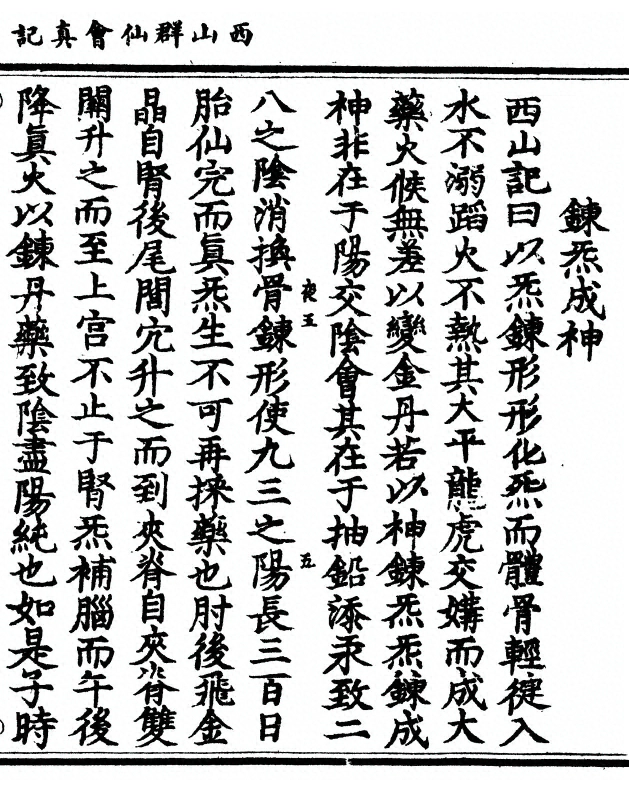 西山群仙會真記
鍊炁成神
西山記曰以炁鍊形形化炁而體骨輕徤入
水不溺蹈火不熱其大平龍虎交媾而成大
藥火候無差以變金丹若以神鍊炁炁鍊成
神非在于陽交陰會其在于抽鉛添汞致二
夜五 五
八之陰消換骨鍊形使九三之陽長三百日
胎仙完而眞炁生不可再採藥也肘後飛金
晶自腎後尾閭穴升之而到夾脊自夾脊雙
關升之而至上宮不止于腎炁補腦而午後
降眞火以鍊丹藥致陰盡陽純也如是子時